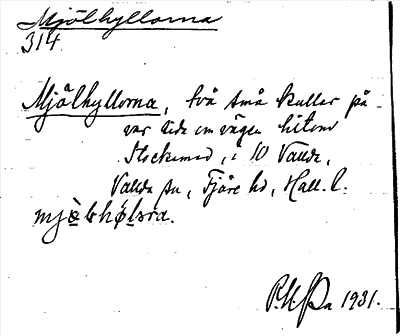 Mjölhyllorna
314.
Mjölhyllorna, två små kullar på
var sida om vägen hitom
Stockemad, i 10 Vallda,
Vallda sn, Fjäre hd, Hall. l.
P.W.Pa 1931.